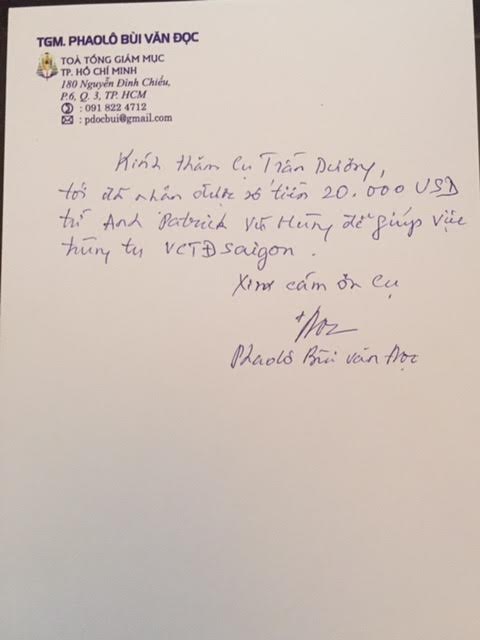 TGM. PHAOLÔ BÙI VĂN ĐỌC
TOÀ TỔNG GIÁM MỤC
TP. HỒ CHÍ MINH
180 Nguyễn Đình Chiểu,
P.6, Q. 3, TP. HCM
: 091 822 4712
: pdocbui@gmail.com
Kính thăm Cụ Trần Dưỡng,
tôi đã nhận được số tiền 20.000 USD
từ Anh Patrick Vũ Hùng để giúp việc
trùng tu VCTĐ Saigon.
Xin cám ơn Cụ
Phaolô Bùi văn Đọc